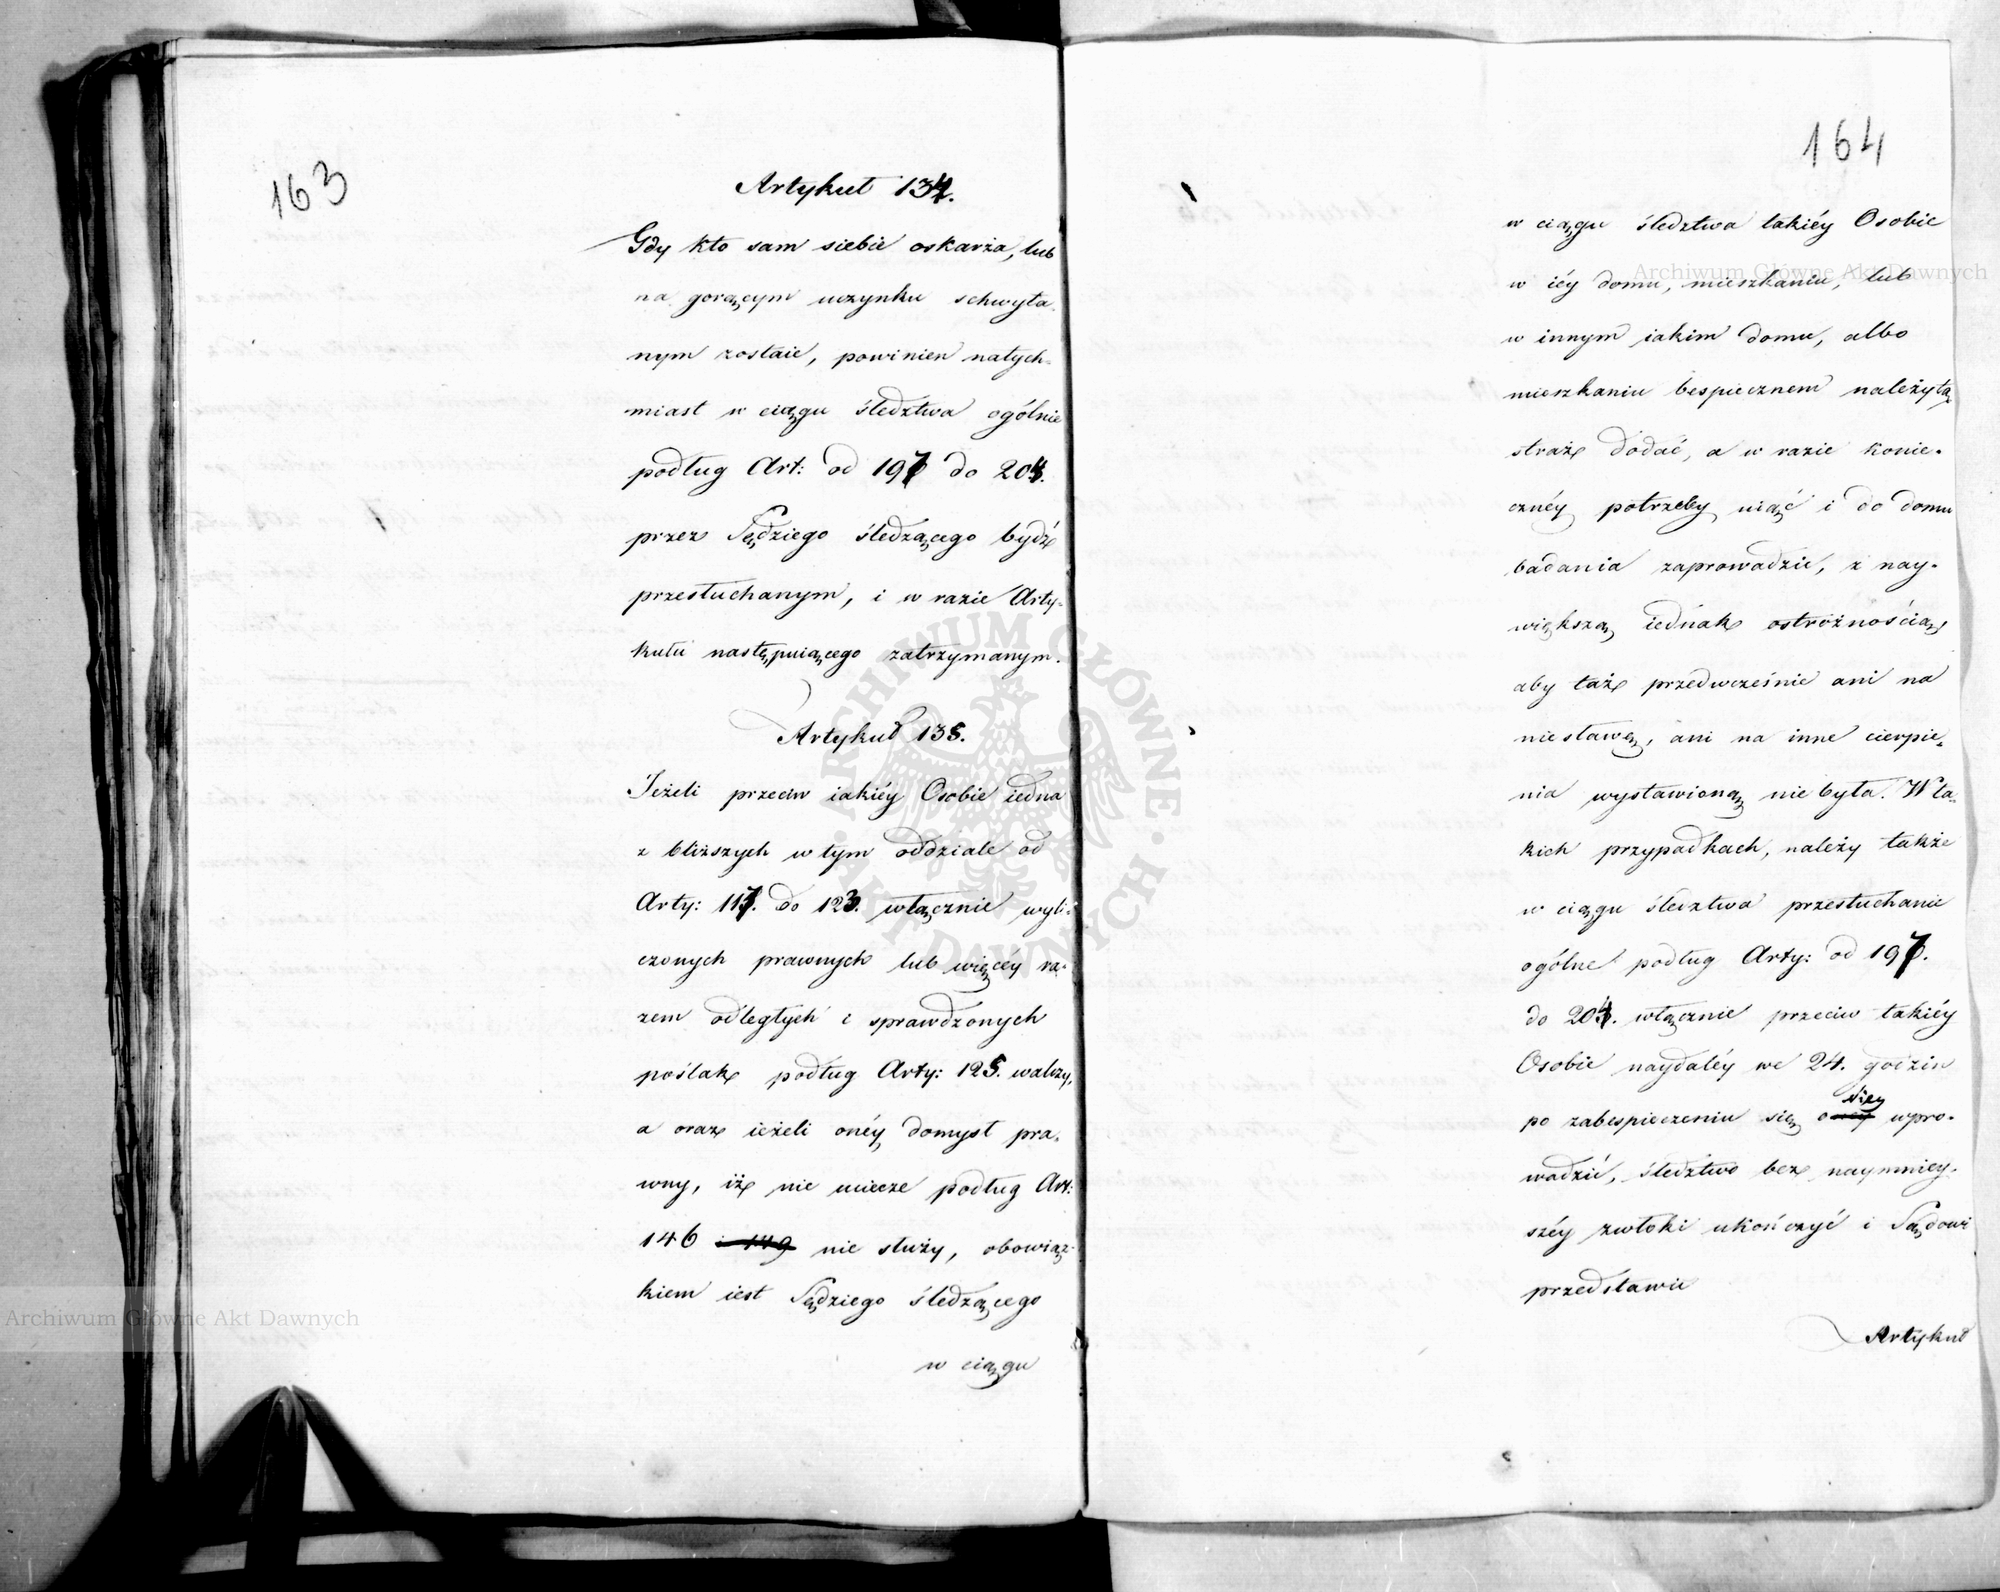 163
Artykuł 134.
Gdy kto sam siebie oskarża, lub
na gorącym uczynku schwyta-
nym zostaie, powinien natych-
miast w ciągu śledztwa ogólnie
podług Art: od 197 do 204.
przez Sędziego śledzącego bydź
przesłuchanym, i w razie Arty-
kułu następuiącego zatrzymanym.
Artykuł 135.
Jeżeli przeciw iakiéy Osobie iedna
z bliższych w tym oddziale od
Arty: 117. do 123. włącznie wyli-
czonych prawnych lub więcéy ra-
zem odległych i sprawdzonych
poślak podług Arty: 125. walczy,
a oraz ieżeli onéy domysł pra-
wny, iż nie uiecze podług Art:
146 i 149 nie służy, obowiąz-
kiem iest Sędziego śledzącego
w ciągu
164
w ciągu śledztwa takiéy Osobie
w iéy domu, mieszkaniu, lub
w innym iakim domu, albo
mieszkaniu bespiecznem należytą
straż dodać, a w razie konie-
cznéy potrzeby uiąć i do domu
badania zaprowadzić, z nay-
większą iednak ostróżnością,
aby taż przedwcześnie ani na
niesławę, ani na inne cierpie-
nia wystawioną nie była. W ta-
kich przypadkach, należy także
w ciągu śledztwa przesłuchanie
ogólne podług Arty: od 197.
do 204. włącznie przeciw takiéy
Osobie naydaléy we 24. godzin
niey
po zabespieczeniu się oney wpro-
wadzić, śledztwo bez naymniey-
széy zwłoki ukończyć i Sądowi
przedstawić
Artykuł
Archiwum Główne Akt Dawnych
Archiwum Główne Akt Dawnych
ARCHIWUM GŁÓWNE AKT DAWNYCH